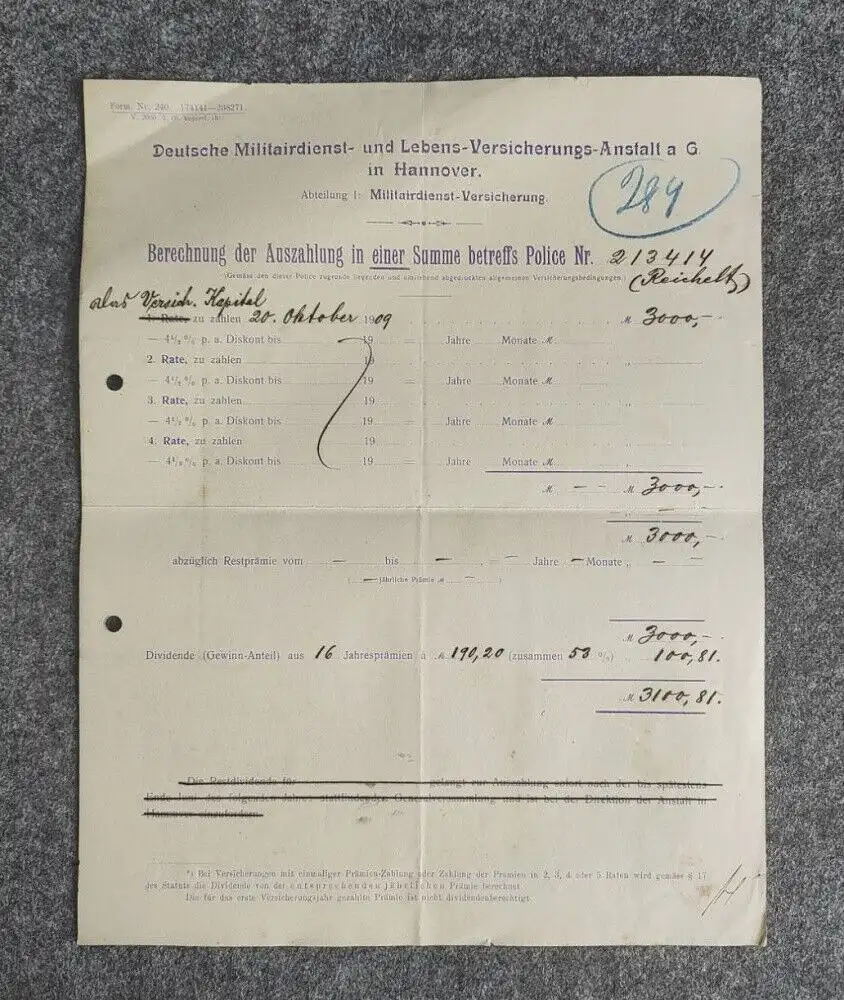 Form. Nr. 240. 174141—208271.
Deutsche Militairdienst- und Lebens-Versicherungs-Anstalt a G.
in Hannover.
Abteilung I: Militairdienst-Versicherung.
284
Berechnung der Auszahlung in einer Summe betreffs Police Nr. 213414
(Gemäss den dieser Police zugrunde liegenden und umstehend abgedruckten allgemeinen Versicherungsbedingungen.) (Reichelt)
das Versich. Kapital
1. Rate, zu zahlen 20. Oktober 1909 M 3000,-
— 4½ % p. a. Diskont bis 19 = Jahre Monate M
2. Rate, zu zahlen 19 "
— 4½ % p. a. Diskont bis 19 = Jahre Monate M
3. Rate, zu zahlen 19 "
— 4½ % p. a. Diskont bis 19 = Jahre Monate M
4. Rate, zu zahlen 19 "
— 4½ % p. a. Diskont bis 19 = Jahre Monate M
M — — M 3000,-
" —
M 3000,-
abzüglich Restprämie vom — bis — = — Jahre — Monate " — —
( — jährliche Prämie M — )
M 3000,-
Dividende (Gewinn-Anteil) aus 16 Jahresprämien à M 190,20 (zusammen 53 %) " 100,81.
M 3100,81.
Die Restdividende für gelangt zur Auszahlung sofort nach der bis spätestens
Ende Juni des folgenden Jahres stattfindenden Generalversammlung und ist bei der Direktion der Anstalt in
Hannover einzufordern.
*) Bei Versicherungen mit einmaliger Prämien-Zahlung oder Zahlung der Prämien in 2, 3, 4 oder 5 Raten wird gemäss § 17
des Statuts die Dividende von der entsprechenden jährlichen Prämie berechnet.
Die für das erste Versicherungsjahr gezahlte Prämie ist nicht dividendenberechtigt.